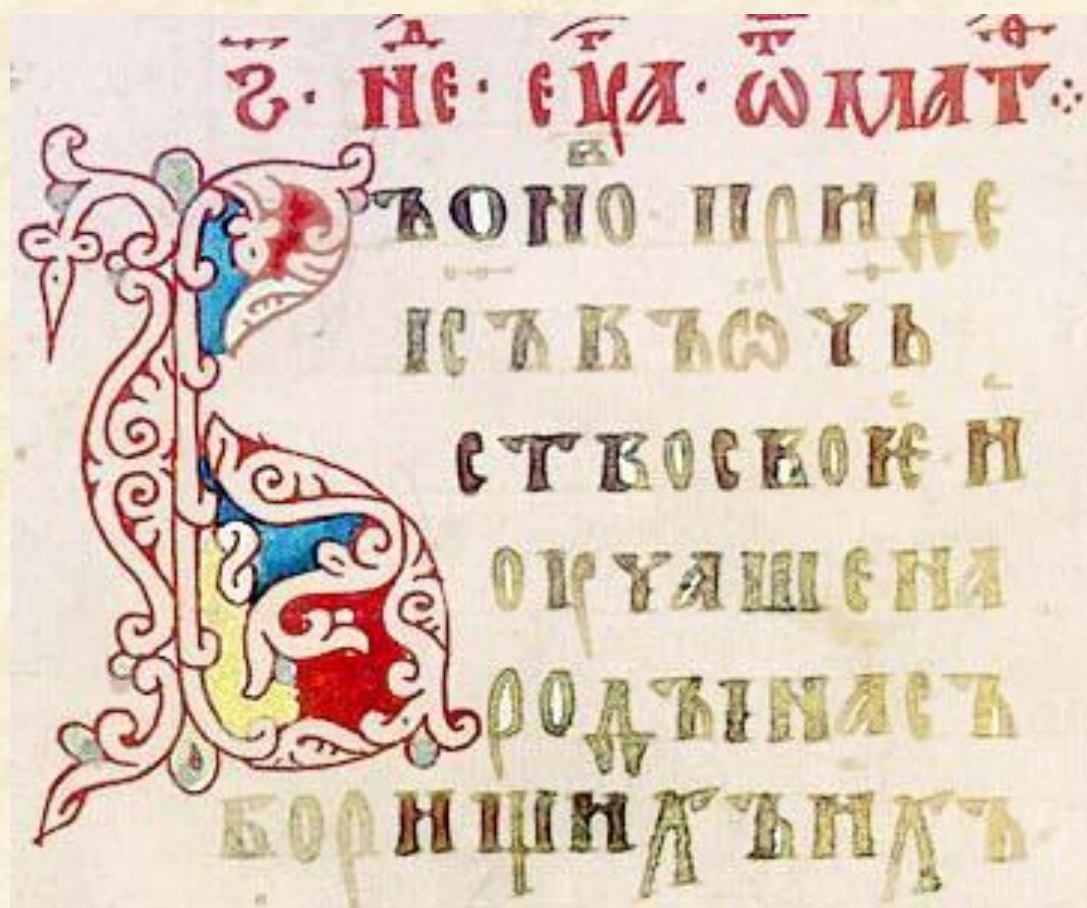 ѕ҃ · неⷣ · еѵⷢа · ѿ маⷮѳ ⁘
Въ оноⷡ · приде
і҃съ въ ѡ҃чь
ство своѥ · и
оучаше на
родъі на съ
борищихъ ихъ